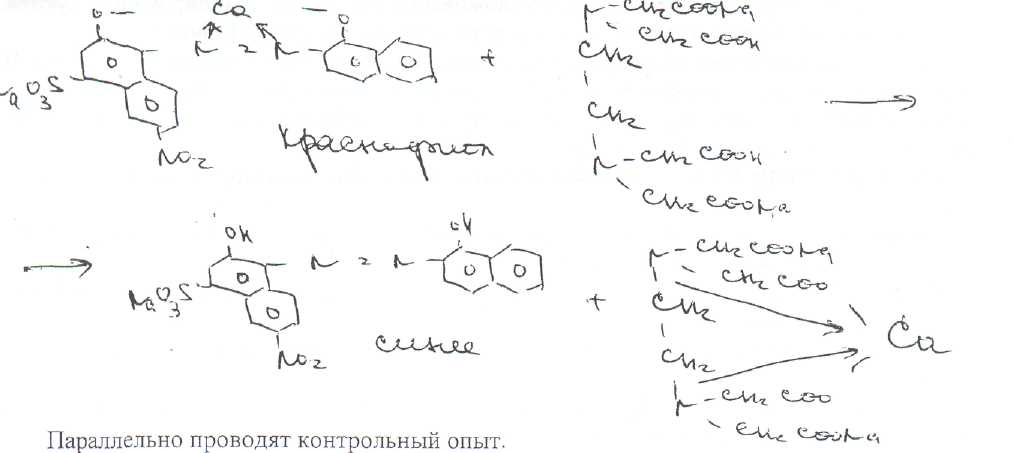 O — Ca — O
N = N
NaO3S
NO2
+
N – CH2COONa
CH2COOH
CH2
CH2
N – CH2COOH
CH2COONa
OH
OH
N = N
NaO3S
NO2
синее
+
N – CH2COONa
CH2COO
CH2
CH2
Ca
N – CH2COO
CH2COONa
Параллельно проводят контрольный опыт.